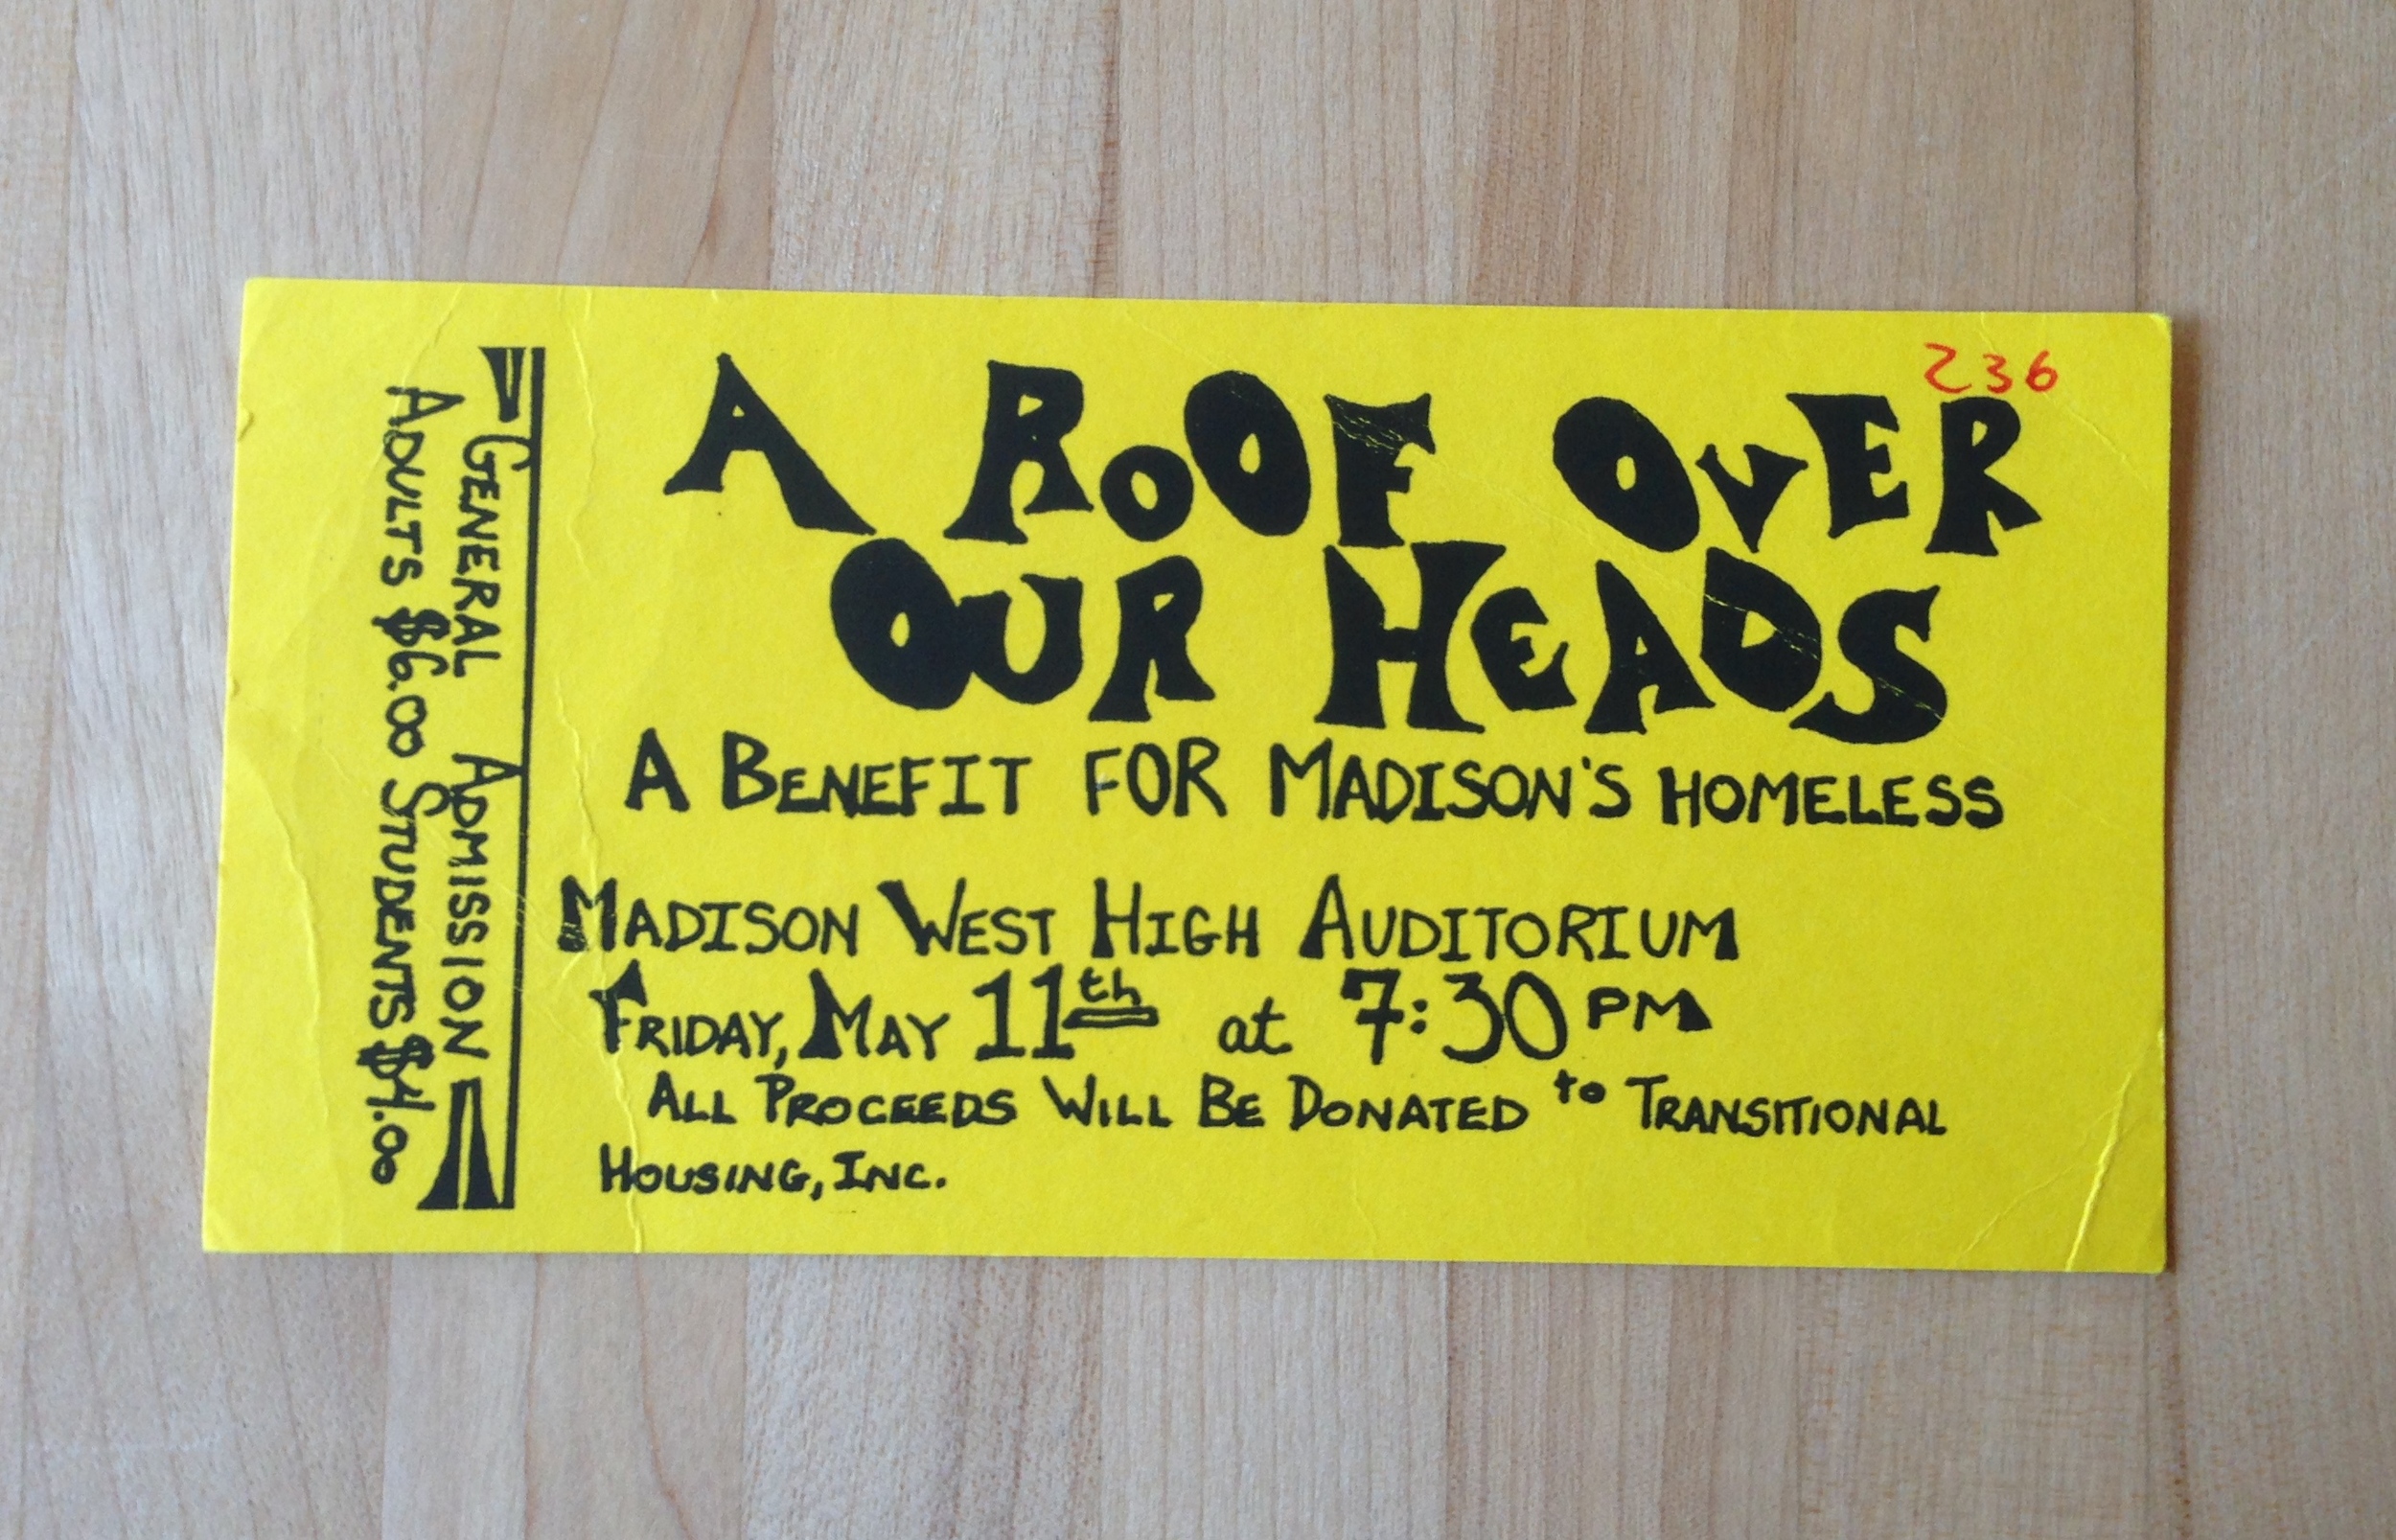 236
A ROOF OVER
OUR HEADS
A BENEFIT FOR MADISON'S HOMELESS
MADISON WEST HIGH AUDITORIUM
FRIDAY, MAY 11th at 7:30 PM
ALL PROCEEDS WILL BE DONATED to TRANSITIONAL
HOUSING, INC.
GENERAL ADMISSION
ADULTS $6.00 STUDENTS $4.00